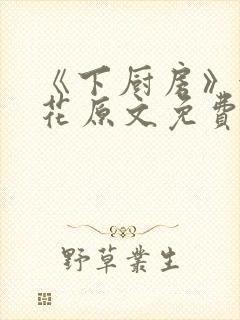 《下厨房》
花原文免費
野草叢生